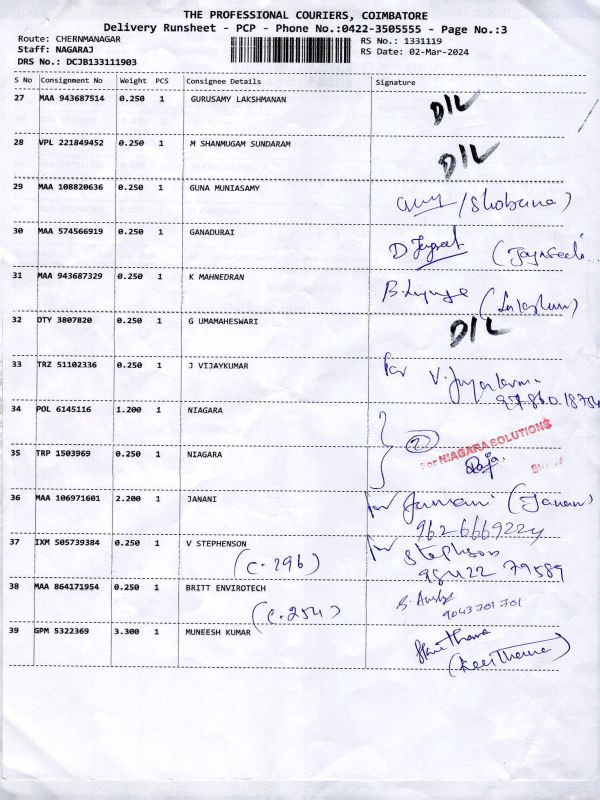 THE PROFESSIONAL COURIERS, COIMBATORE
Delivery Runsheet - PCP - Phone No.:0422-3505555 - Page No.:3
Route: CHERNMANAGAR RS No.: 1331119
Staff: NAGARAJ RS Date: 02-Mar-2024
DRS No.: DCJB133111903
S No Consignment No Weight PCS Consignee Details Signature
27 MAA 943687514 0.250 1 GURUSAMY LAKSHMANAN DIL
28 VPL 221849452 0.250 1 M SHANMUGAM SUNDARAM DIL
29 MAA 108820636 0.250 1 GUNA MUNIASAMY (Shobana)
30 MAA 574566919 0.250 1 GANADURAI
31 MAA 943687329 0.250 1 K MAHNEDRAN
32 DTY 3807820 0.250 1 G UMAMAHESWARI DIL
33 TRZ 51102336 0.250 1 J VIJAYKUMAR for
34 POL 6145116 1.200 1 NIAGARA 2
For NIAGARA SOLUTIONS
35 TRP 1503969 0.250 1 NIAGARA Raja
36 MAA 106971601 2.200 1 JANANI for Janani (Janani)
9626669224
37 IXM 505739384 0.250 1 V STEPHENSON for Stephson
(C.296) 98422 79589
38 MAA 864171954 0.250 1 BRITT ENVIROTECH
(C.254) 9043701701
39 GPM 5322369 3.300 1 MUNEESH KUMAR
(Keerthana)